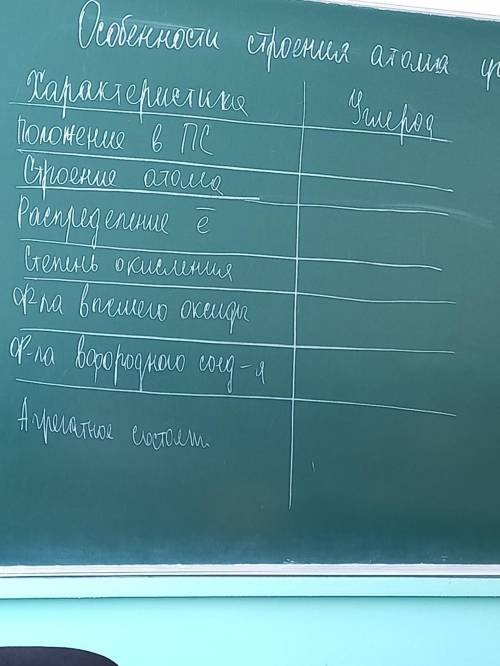 Особенности строения атома
Характеристика Углерод
Положение в ПС
Строение атома
Распределение ē
Степень окисления
Ф-ла высшего оксида
Ф-ла водородного соед-я
Агрегатное